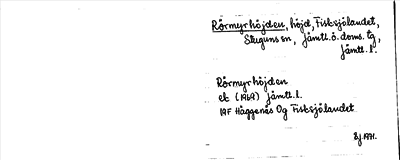 Rörmyrhöjden, höjd, Fisksjölandet,
Stuguns sn, Jämtl.ö.doms. tg,
Jämtl. l.
Rörmyrhöjden
ek (1969) Jämtl. l.
19F Häggenås Og Fisksjölandet
1971.